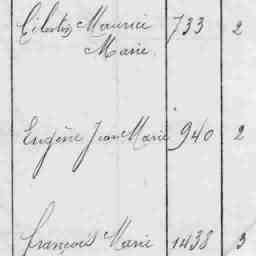 Célestin Maurice 733 2
Marie
Eugène Jean Marie 940 2
François Marie 1438 3